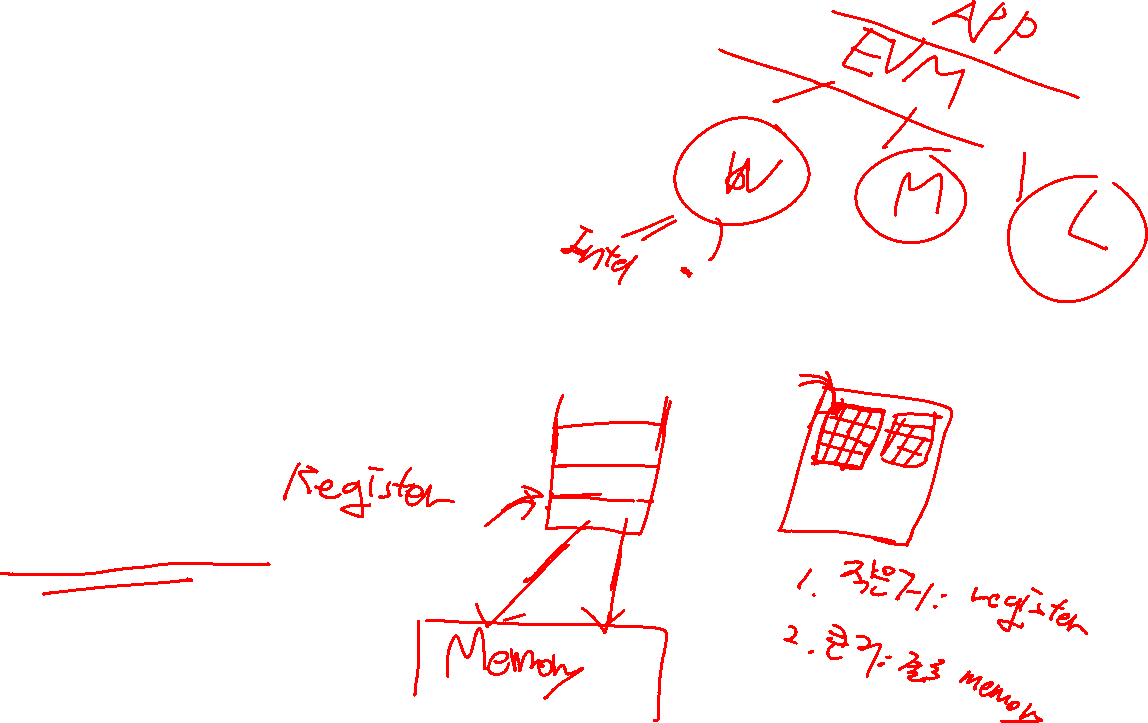 APP
EVM
W
M
L
Intel
Register
Memory
1. 작은거: register
2. 큰거: 주로 memory